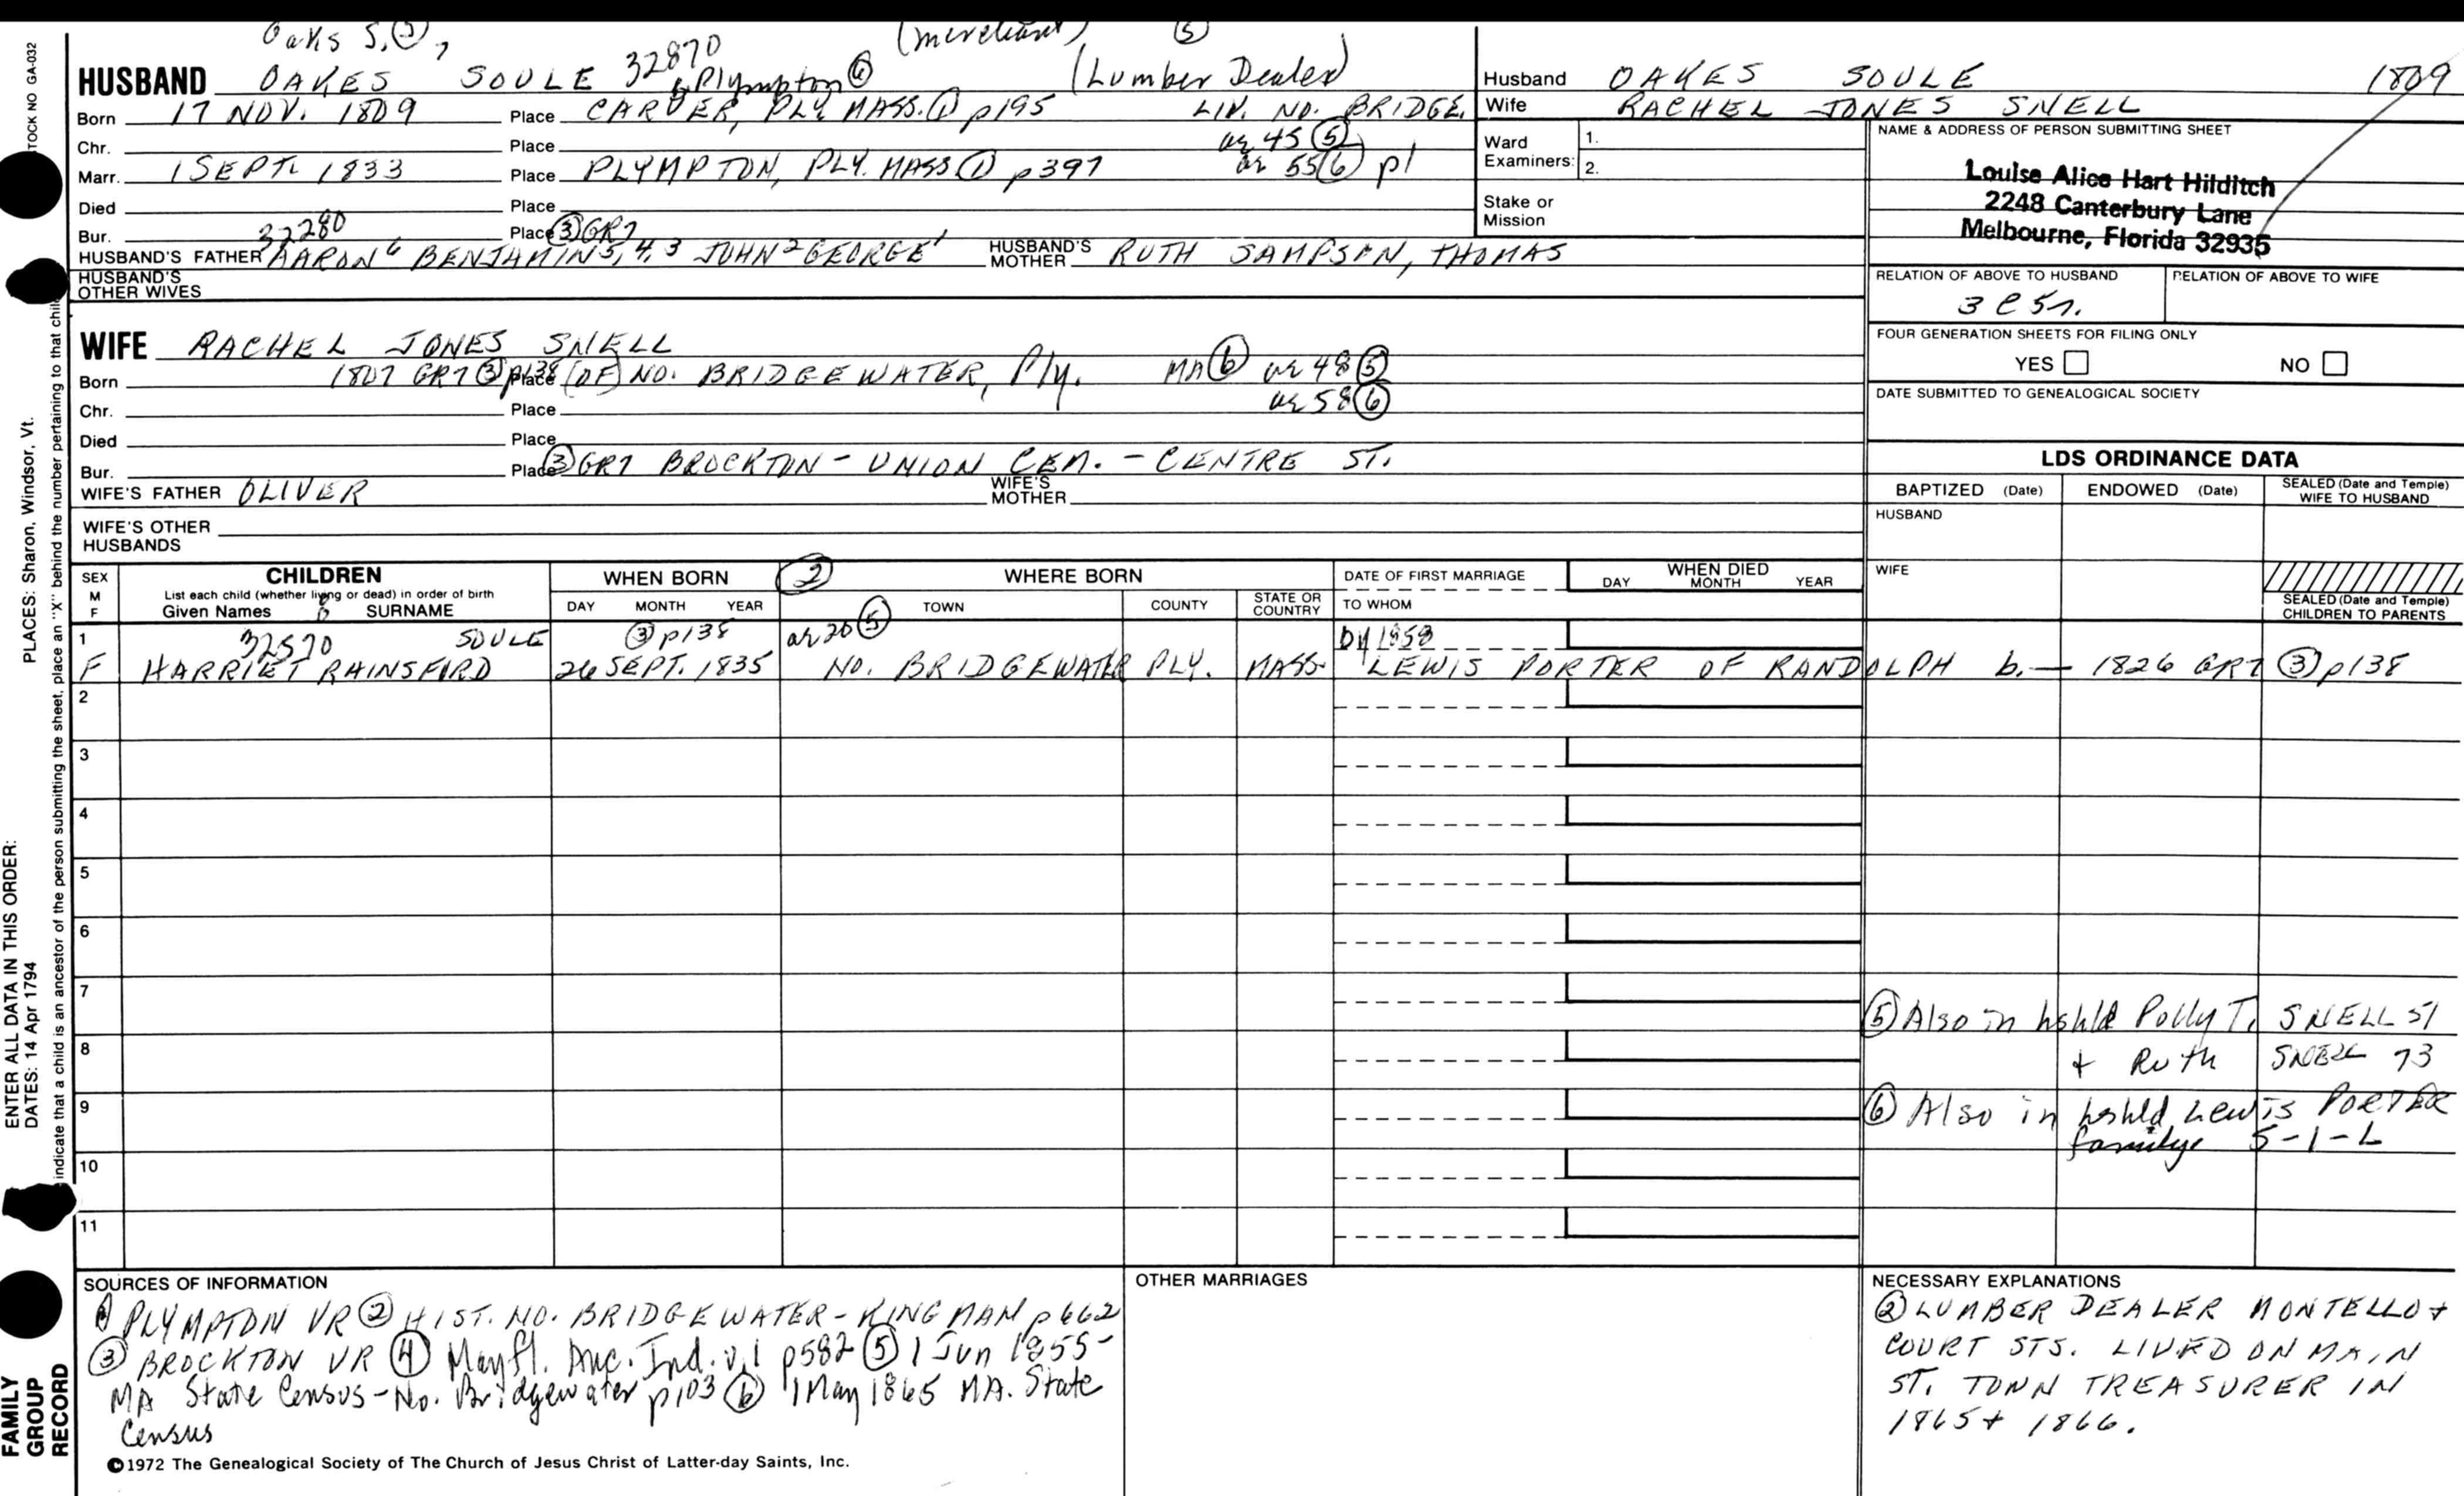 Oaks S. ③,
32870
(merchant) ⑤
HUSBAND OAKES SOULE (Lumber Dealer)
Plympton ⑥
Born 17 NOV. 1809 Place CARVER, PLY MASS. ① p195 LIV. NO. BRIDGE.
Chr. Place ae 45 ⑤
Marr. 1 SEPT. 1833 Place PLYMPTON, PLY. MASS ① p397 ae 55 ⑥ p1
Died Place
Bur. Place ③ GR7
32280
HUSBAND'S FATHER AARON 6 BENJAMIN 5, 4, 3 JOHN 2 GEORGE 1 HUSBAND'S MOTHER RUTH SAMPSON, THOMAS
HUSBAND'S OTHER WIVES
WIFE RACHEL JONES SNELL
Born 1807 GR7 ③ p138 Place (OF) NO. BRIDGEWATER, Ply. MA ⑥ ae 48 ⑤
Chr. Place ae 58 ⑥
Died Place
Bur. Place ③ GR7 BROCKTON - UNION CEM. - CENTRE ST.
WIFE'S FATHER OLIVER WIFE'S MOTHER
WIFE'S OTHER HUSBANDS
Husband OAKES SOULE 1809
Wife RACHEL JONES SNELL
Ward Examiners: 1.
2.
Stake or Mission
NAME & ADDRESS OF PERSON SUBMITTING SHEET
Louise Alice Hart Hilditch
2248 Canterbury Lane
Melbourne, Florida 32935
RELATION OF ABOVE TO HUSBAND RELATION OF ABOVE TO WIFE
FOUR GENERATION SHEETS FOR FILING ONLY
YES NO
DATE SUBMITTED TO GENEALOGICAL SOCIETY
LDS ORDINANCE DATA
BAPTIZED (Date) ENDOWED (Date) SEALED (Date and Temple) WIFE TO HUSBAND
HUSBAND
WIFE
SEALED (Date and Temple) CHILDREN TO PARENTS
SEX M F
CHILDREN
List each child (whether living or dead) in order of birth
Given Names SURNAME
WHEN BORN
DAY MONTH YEAR
② WHERE BORN
TOWN COUNTY STATE OR COUNTRY
DATE OF FIRST MARRIAGE
TO WHOM
WHEN DIED
DAY MONTH YEAR
1 32570 SOULE ③ p138 ae 20 ⑤ by 1858
F HARRIET RAINSFORD 26 SEPT. 1835 NO. BRIDGEWATER PLY. MASS. LEWIS PORTER OF RANDOLPH b. — 1826 GR7 ③ p138
2
3
4
5
6
7
8
9
10
11
⑤ Also in hshld Polly T. SNELL 51
+ Ruth SNELL 73
⑥ Also in hshld Lewis PORTER
family 5-1-L
SOURCES OF INFORMATION
① PLYMPTON VR ② HIST. NO. BRIDGEWATER - KINGMAN p662
③ BROCKTON VR ④ Mayfl. Anc. Ind. v.1 p582 ⑤ 1 Jun 1855 -
MA State Census - No. Bridgewater p103 ⑥ 1 May 1865 MA. State
Census
©1972 The Genealogical Society of The Church of Jesus Christ of Latter-day Saints, Inc.
OTHER MARRIAGES
NECESSARY EXPLANATIONS
② LUMBER DEALER MONTELLO +
COURT STS. LIVED ON MAIN
ST. TOWN TREASURER IN
1865 + 1866.
STOCK NO GA-032
PLACES: Sharon, Windsor, Vt.
ENTER ALL DATA IN THIS ORDER:
DATES: 14 Apr 1794
indicate that a child is an ancestor of the person submitting the sheet, place an "X" behind the number pertaining to that child
FAMILY
GROUP
RECORD